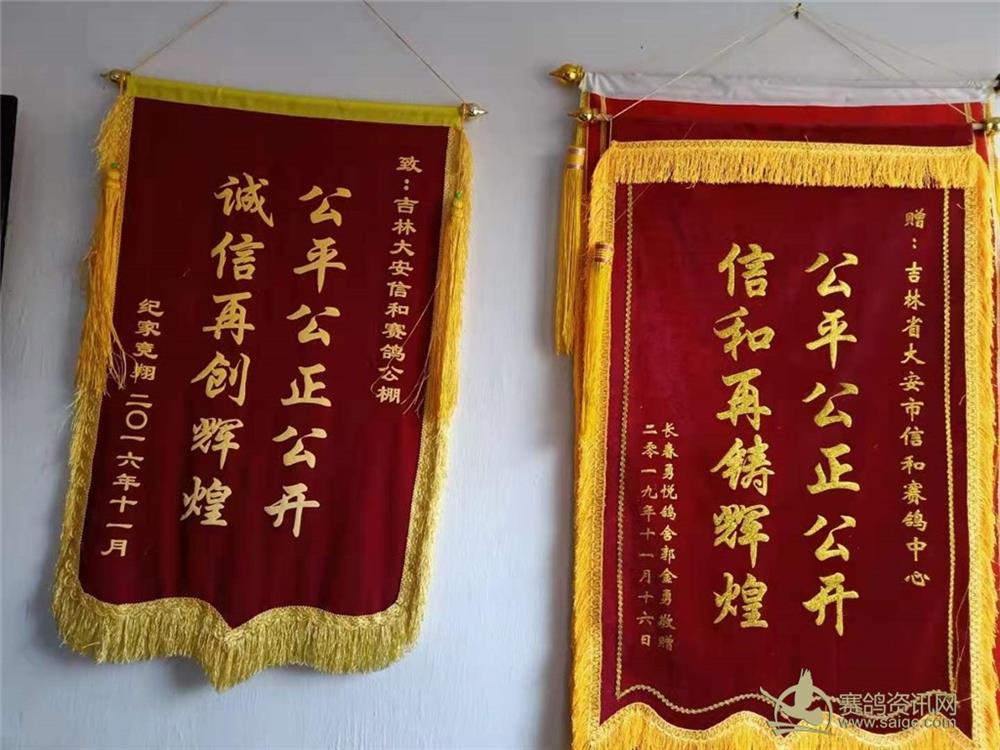 致：吉林大安信和赛鸽公棚
公平公正公开
诚信再创辉煌
纪家竞翔 二〇一六年十一月
赠：吉林省大安市信和赛鸽中心
公平公正公开
信和再铸辉煌
长春勇悦鸽舍郭金勇敬赠
二零一九年十一月十六日
赛鸽资讯网
www.saige.com